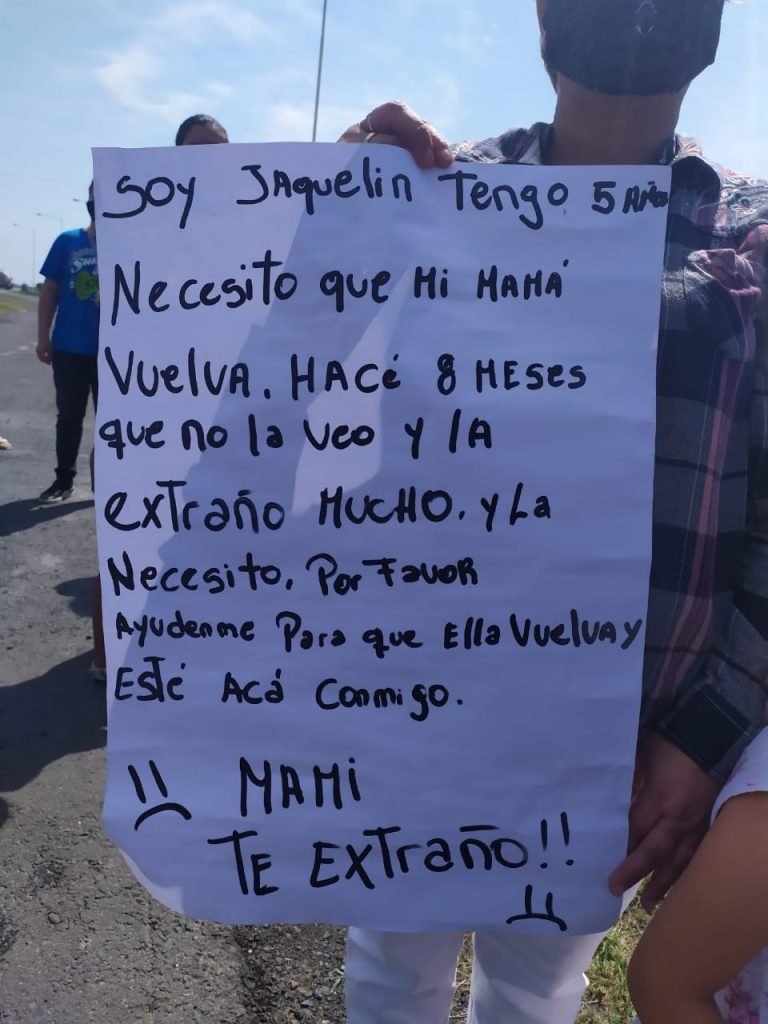 SOY JAquelin Tengo 5 Años
Necesito que mi MAMÁ
VuelVA. HACé 8 MEses
que no la veo y lA
extraño MUCHO. y La
Necesito. Por FavoR
Ayudenme Para que Ella Vuelva y
Esté Acá Conmigo.
MAMi
TE ExTraño!!